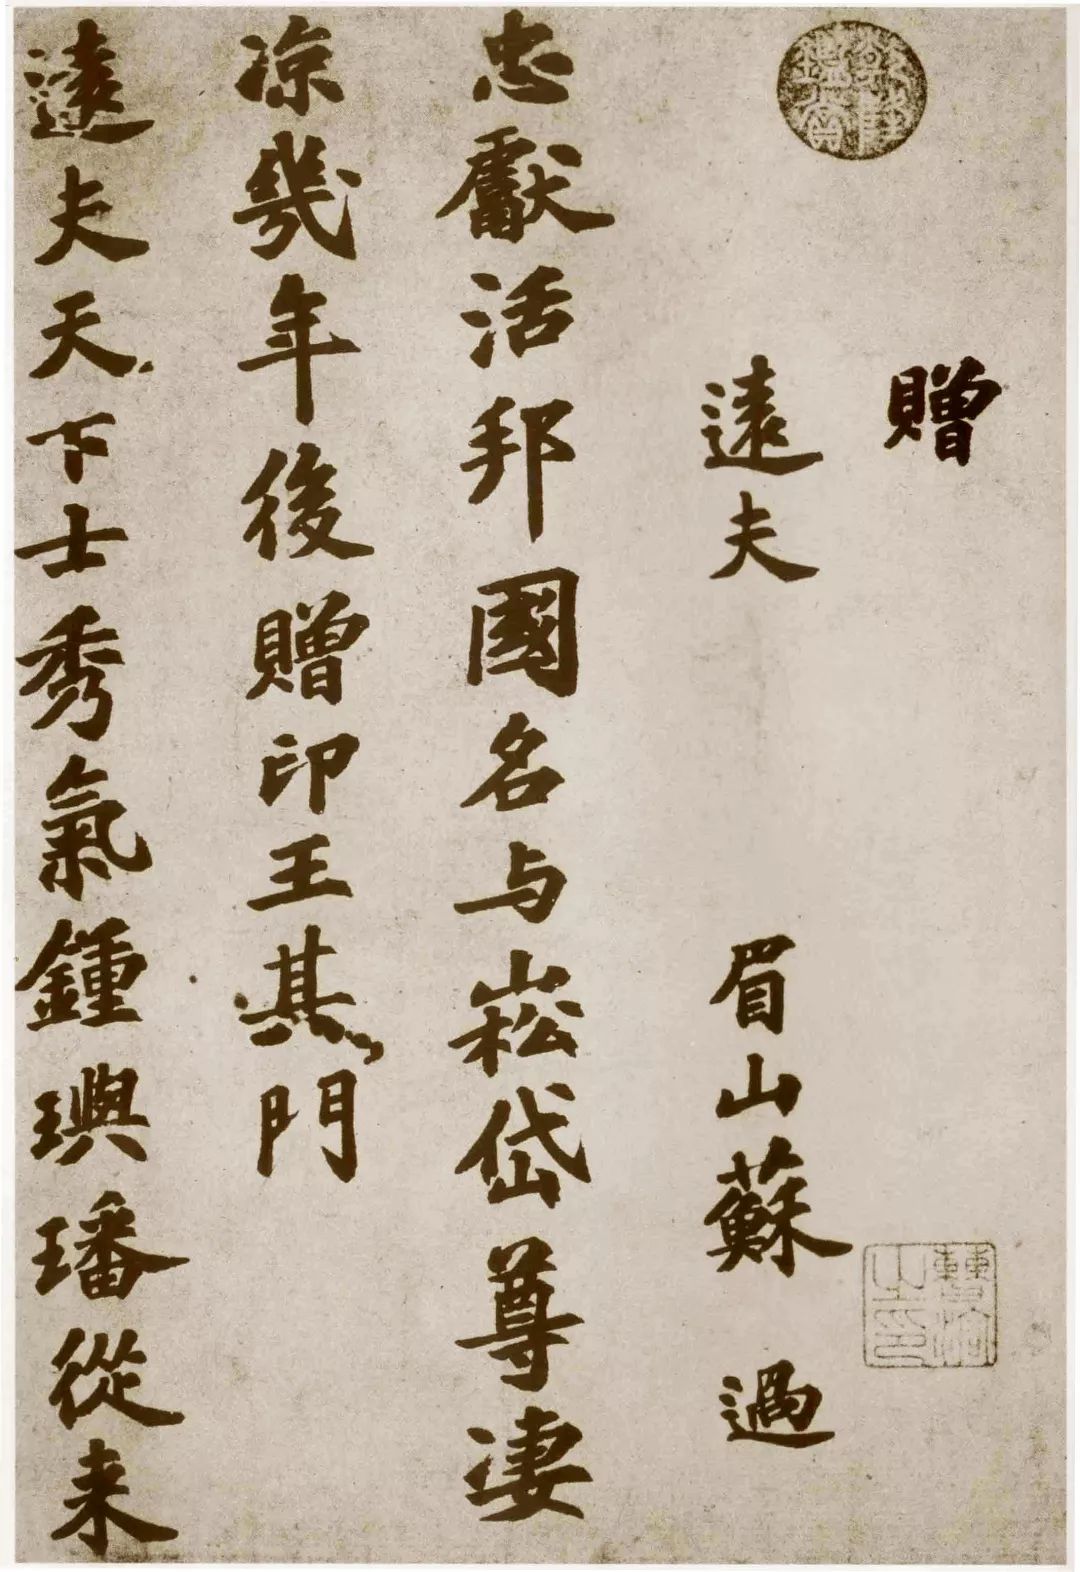 贈
遠夫
眉山蘇過
忠獻活邦國名与崧岱尊淒
凉幾年後贈印王其門
遠夫天下士秀氣鍾璵璠從来
乾隆鑑賞